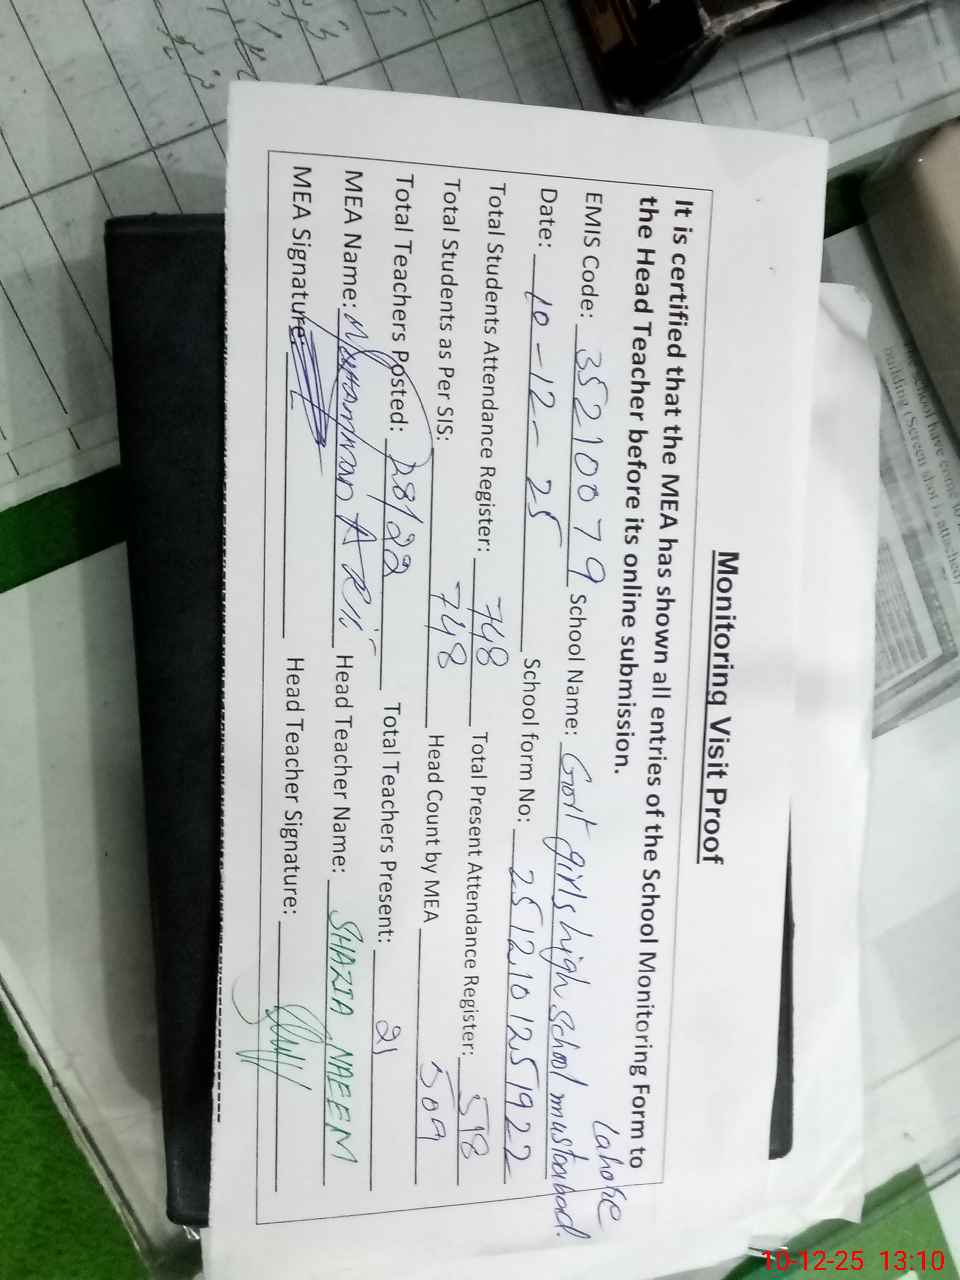 Monitoring Visit Proof
It is certified that the MEA has shown all entries of the School Monitoring Form to
the Head Teacher before its online submission.
Lahore
EMIS Code: 35210079 School Name: Govt girls high school mustaabad.
Date: 10-12-25 School form No: 2512101251922
Total Students Attendance Register: 748 Total Present Attendance Register: 518
Total Students as Per SIS: 748 Head Count by MEA 509
Total Teachers Posted: 28/22 Total Teachers Present: 21
MEA Name: Muhammad Arif Head Teacher Name: SHAZIA NAEEM
MEA Signature: Head Teacher Signature:
building (Screen shot is attached)
10-12-25 13:10